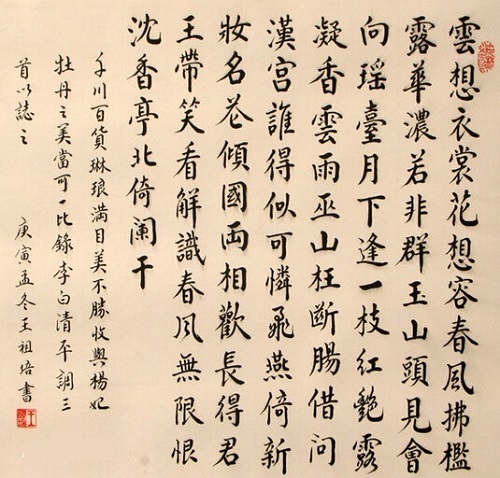 雲想衣裳花想容春風拂檻
露華濃若非群玉山頭見會
向瑤臺月下逢一枝紅艷露
凝香雲雨巫山枉斷腸借問
漢宮誰得似可憐飛燕倚新
妝名花傾國兩相歡長得君
王帶笑看解識春風無限恨
沈香亭北倚闌干
川百貨琳琅滿目美不勝收與楊妃
牡丹之美當可一比錄李白清平調三
首以誌之
庚寅孟冬王祖培書